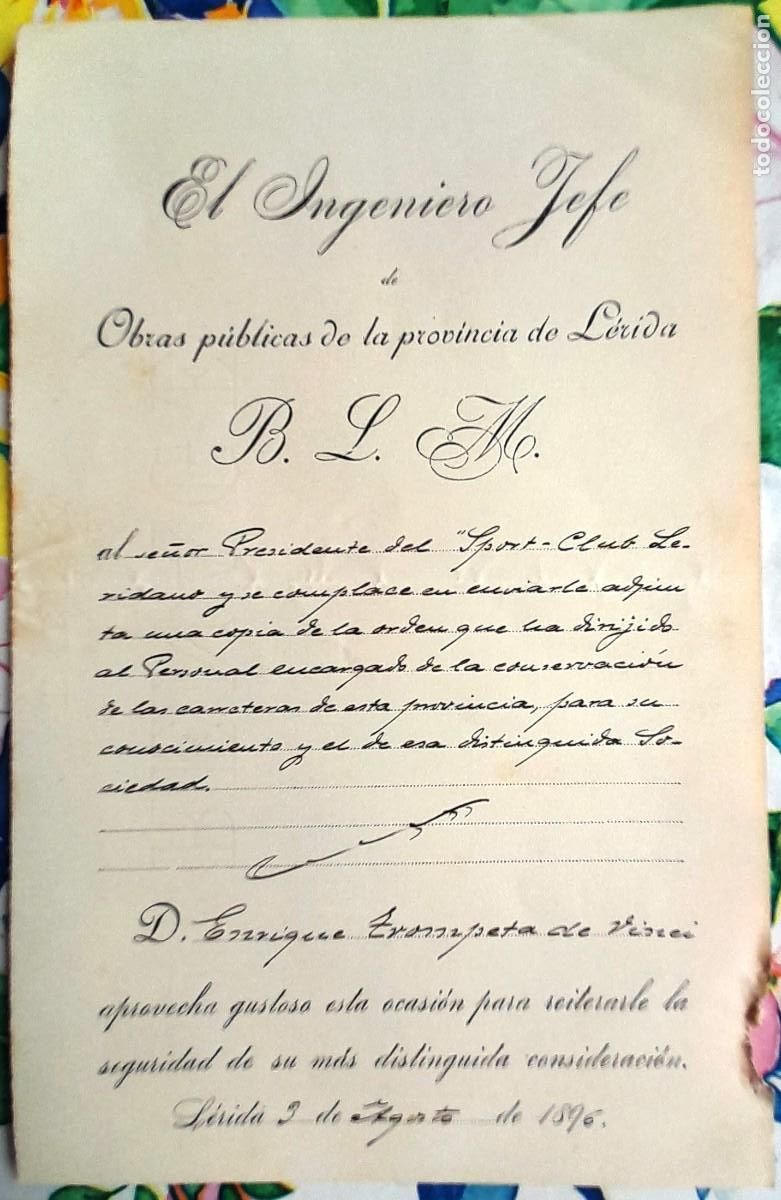 El Ingeniero Jefe
de
Obras públicas de la provincia de Lérida
B. L. M.
al señor Presidente del "Sport-Club Le-
ridano y se complace en enviarle adjun
ta una copia de la orden que ha dirijido
al Personal encargado de la conservación
de las carreteras de esta provincia, para su
conocimiento y el de esa distinguida So-
ciedad.
D. Enrique Trompeta de Vinci
aprovecha gustoso esta ocasión para reiterarle la
seguridad de su más distinguida consideración.
Lérida 3 de Agosto de 1896.
todocoleccion